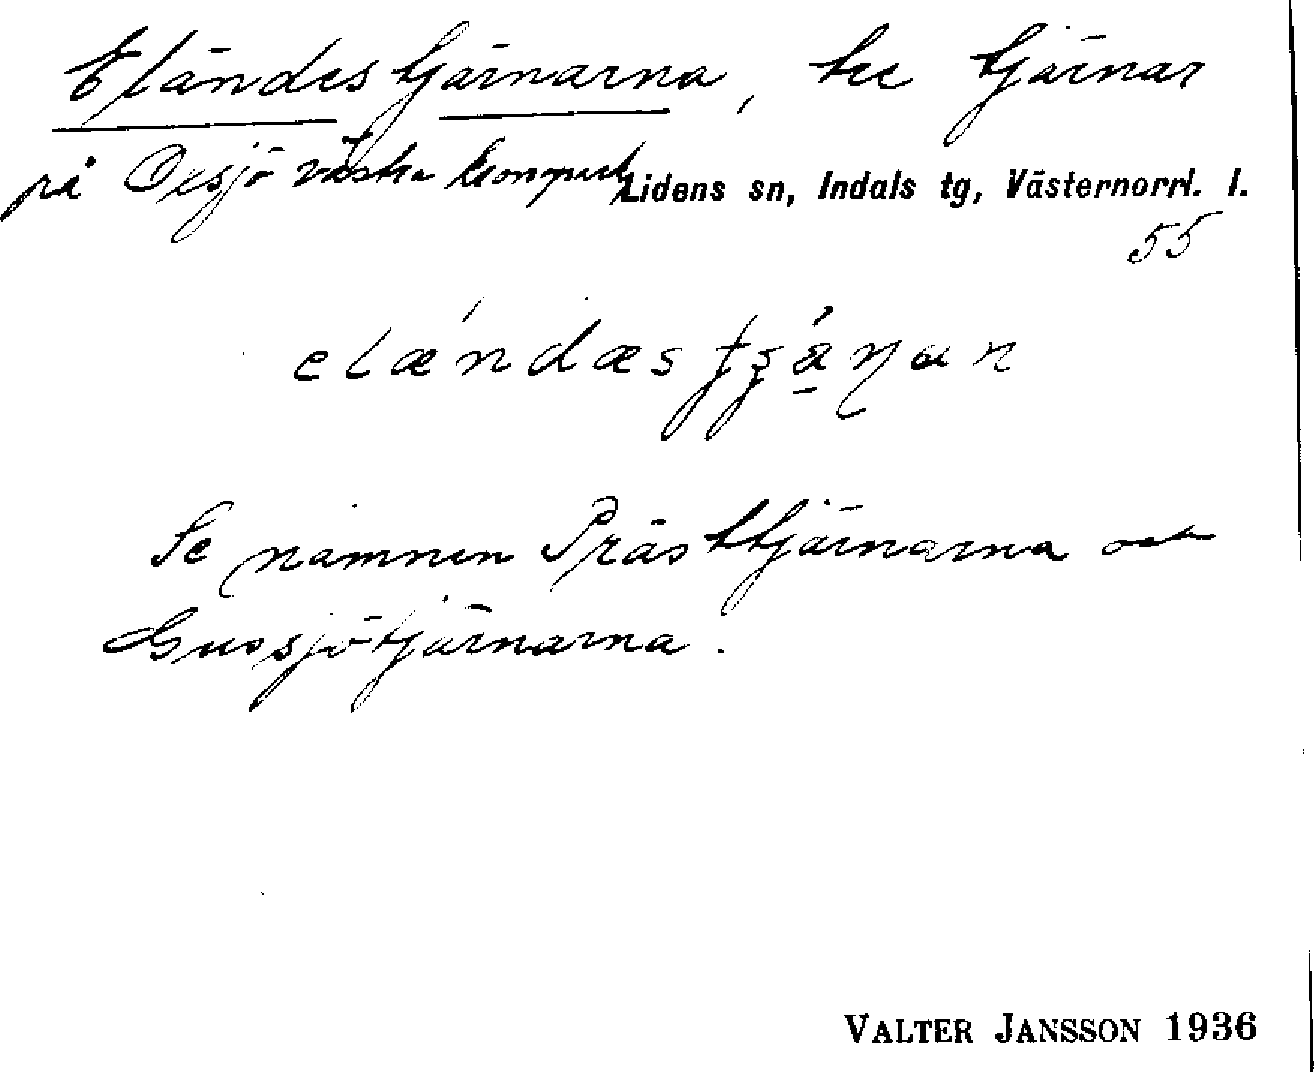 Eländestjärnarna, tre tjärnar
på Oxsjö västra kronpark Lidens sn, Indals tg, Västernorrl. l.
55
Se namnen Prästtjärnarna och
Gussjötjärnarna.
VALTER JANSSON 1936